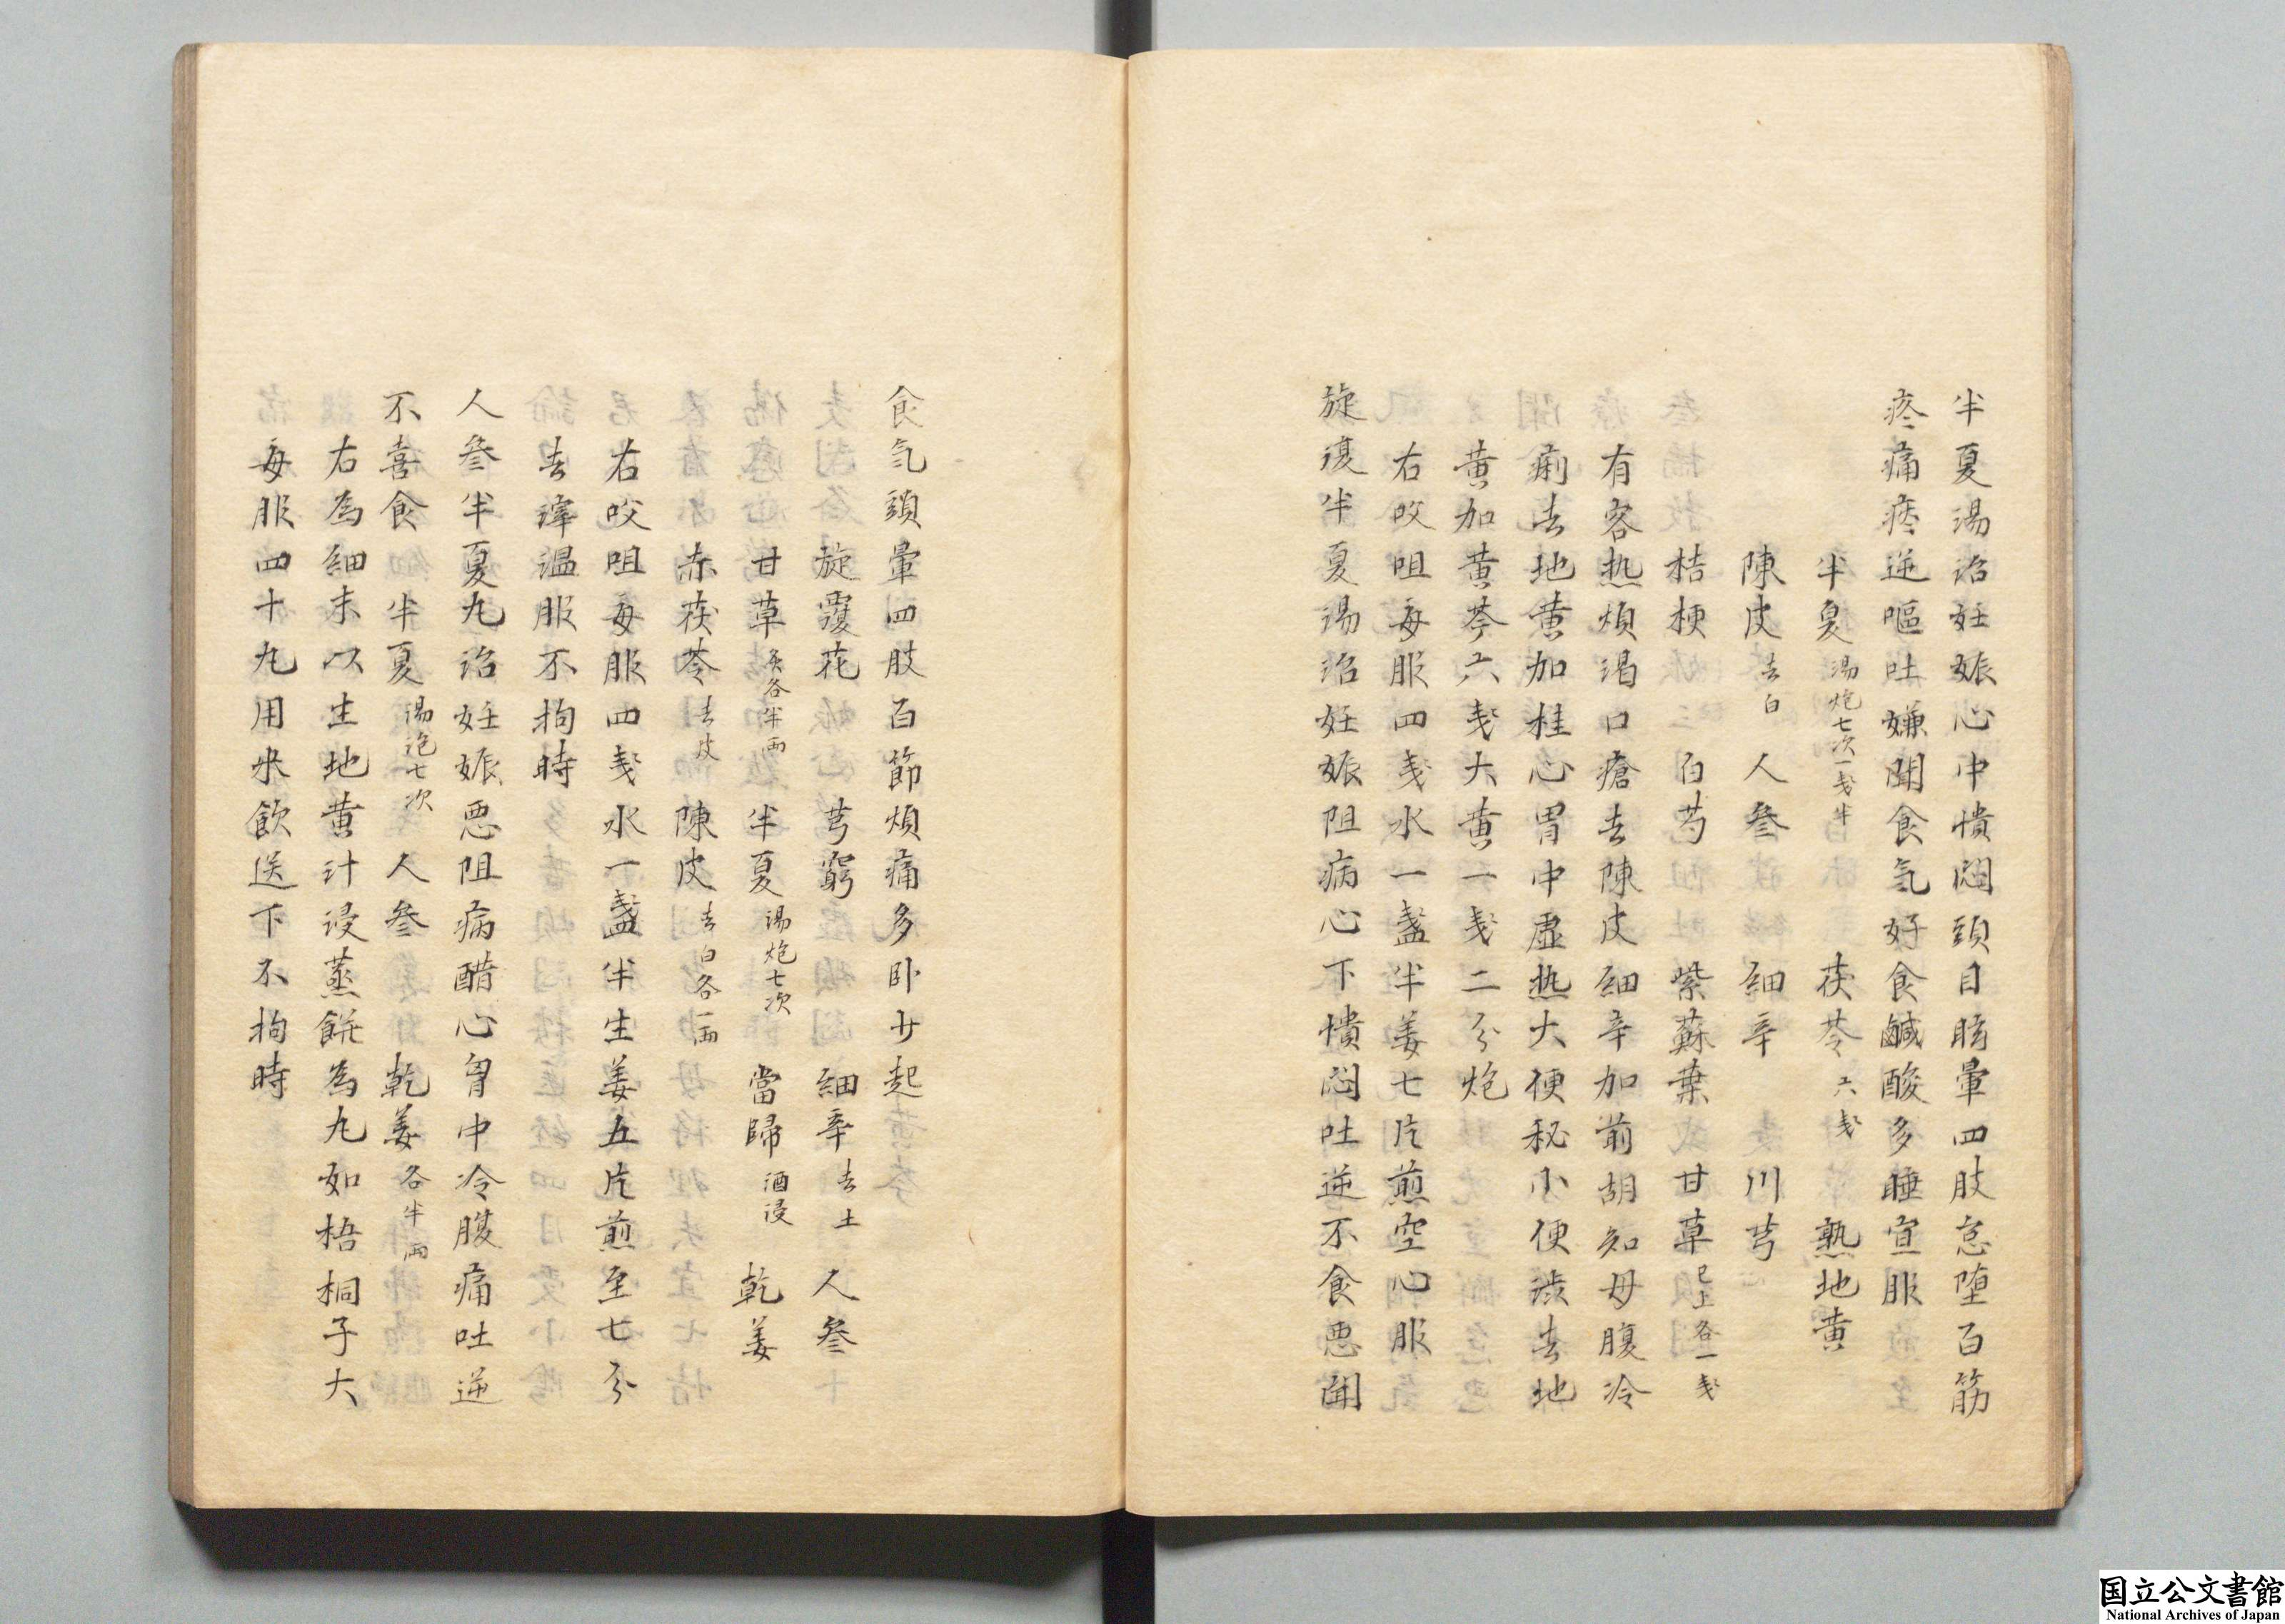 半夏湯治妊娠心中憒悶頭目眩暈四肢怠堕百筋
疼痛痰逆嘔吐嫌聞食気好食鹹酸多睡宣服
半夏湯炮七次一戔半 茯苓六戔 熟地黄
陳皮去白 人參 細辛 川芎
桔梗 白芍 紫蘇葉 甘草已上各一戔
有客热煩渴口瘡去陳皮細辛加前胡知母腹冷
痢去地黄加桂心胃中虚热大便秘小便渋去地
黄加黄芩六戔大黄一戔二分炮
右㕮咀毎服四戔水一盞半姜七片煎空心服
旋復半夏湯治妊娠阻病心下憒悶吐逆不食悪聞
食気頭暈四肢百節煩痛多卧少起
旋覆花 芎窮 細辛去土 人參
甘草炙各半両 半夏湯炮七次 當歸酒浸 乾姜
赤茯苓去皮 陳皮去白各一両
右㕮咀毎服四戔水一盞半生姜五片煎至七分
去滓温服不拘時
人參半夏丸治妊娠悪阻病醋心胷中冷腹痛吐逆
不喜食 半夏湯炮七次 人參 乾姜各半両
右為細末以生地黄汁浸蒸餅為丸如梧桐子大
毎服四十丸用米飲送下不拘時
国立公文書館
National Archives of Japan